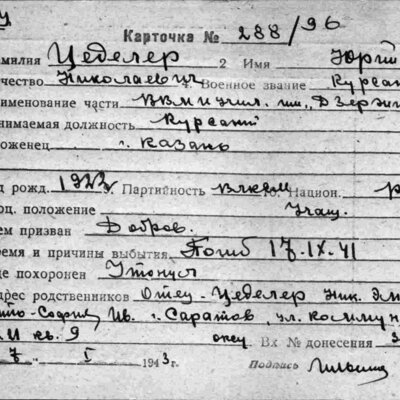 Карточка № 288/96
амилия Цеделер 2 Имя Юрий
чество Николаевич 4. Военное звание Курсант
именование части ВВМИ учил. им. Дзержин
нимаемая должность Курсант
роженец г. Казань
д рожд. 1922 9. Партийность ВЛКСМ 10. Национ. р
оц. положение Учащ.
ем призван Добров.
ремя и причины выбытия Погиб 17.IX.41
де похоронен Утонул
дрес родственников Отец - Цеделер Ник.
г. Саратов, ул. Коммун
кв. 9 Вх № донесения 3
7 I 1943г. Подпись